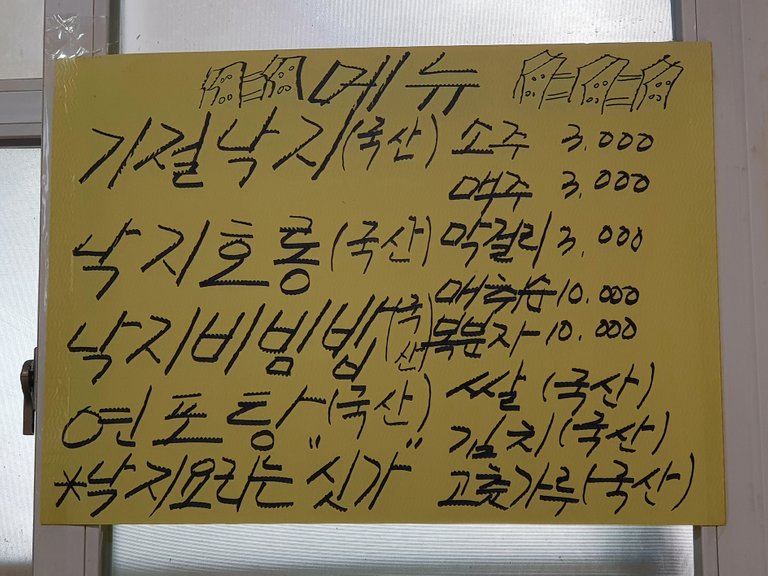 메뉴
기절낙지(국산)
낙지호롱(국산)
낙지비빔밥(국산)
연포탕(국산)
*낙지요리는 "싯가"
소주 3,000
맥주 3,000
막걸리 3,000
매취순 10.000
복분자 10.000
쌀(국산)
김치(국산)
고춧가루(국산)